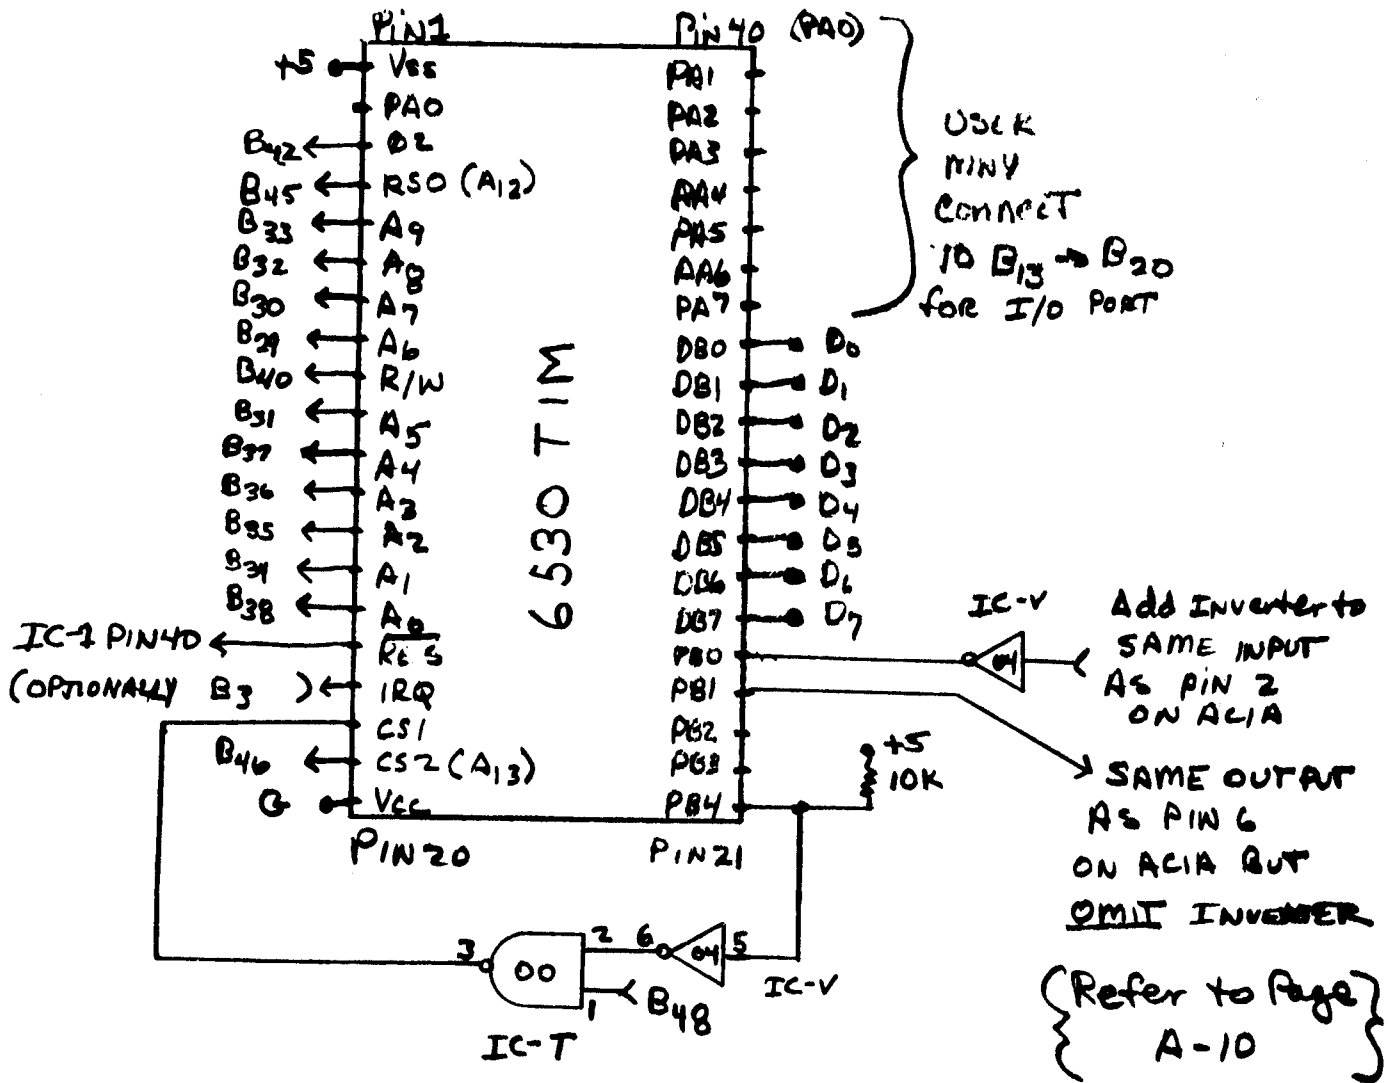 Pin1
Pin40 (PA0)
+5 Vss
PA0
B42 Ø2
B45 RS0 (A12)
B33 A9
B32 A8
B30 A7
B29 A6
B40 R/W
B31 A5
B37 A4
B36 A3
B35 A2
A1
B38 A0
IC-1 PIN40 RES
(OPTIONALLY B3) IRQ
CS1
B46 CS2 (A13)
G Vcc
PIN20
6530 TIM
PA1
PA2
PA3
AA4
PA5
AA6
PA7
DB0 D0
DB1 D1
DB2 D2
DB3 D3
DB4 D4
DB5 D5
DB6 D6
DB7 D7
PB0
PB1
PB2
PB3
PB4
PIN21
CONNECT
TO B13 → B20
FOR I/O PORT
IC-V
04
Add Inverter to
SAME INPUT
AS PIN 2
ON ACIA
+5
10K
SAME OUTPUT
AS PIN 6
ON ACIA BUT
OMIT INVERTER
3 00 2 6 04 5
1 B48
IC-V
IC-T
(Refer to Page
A-10